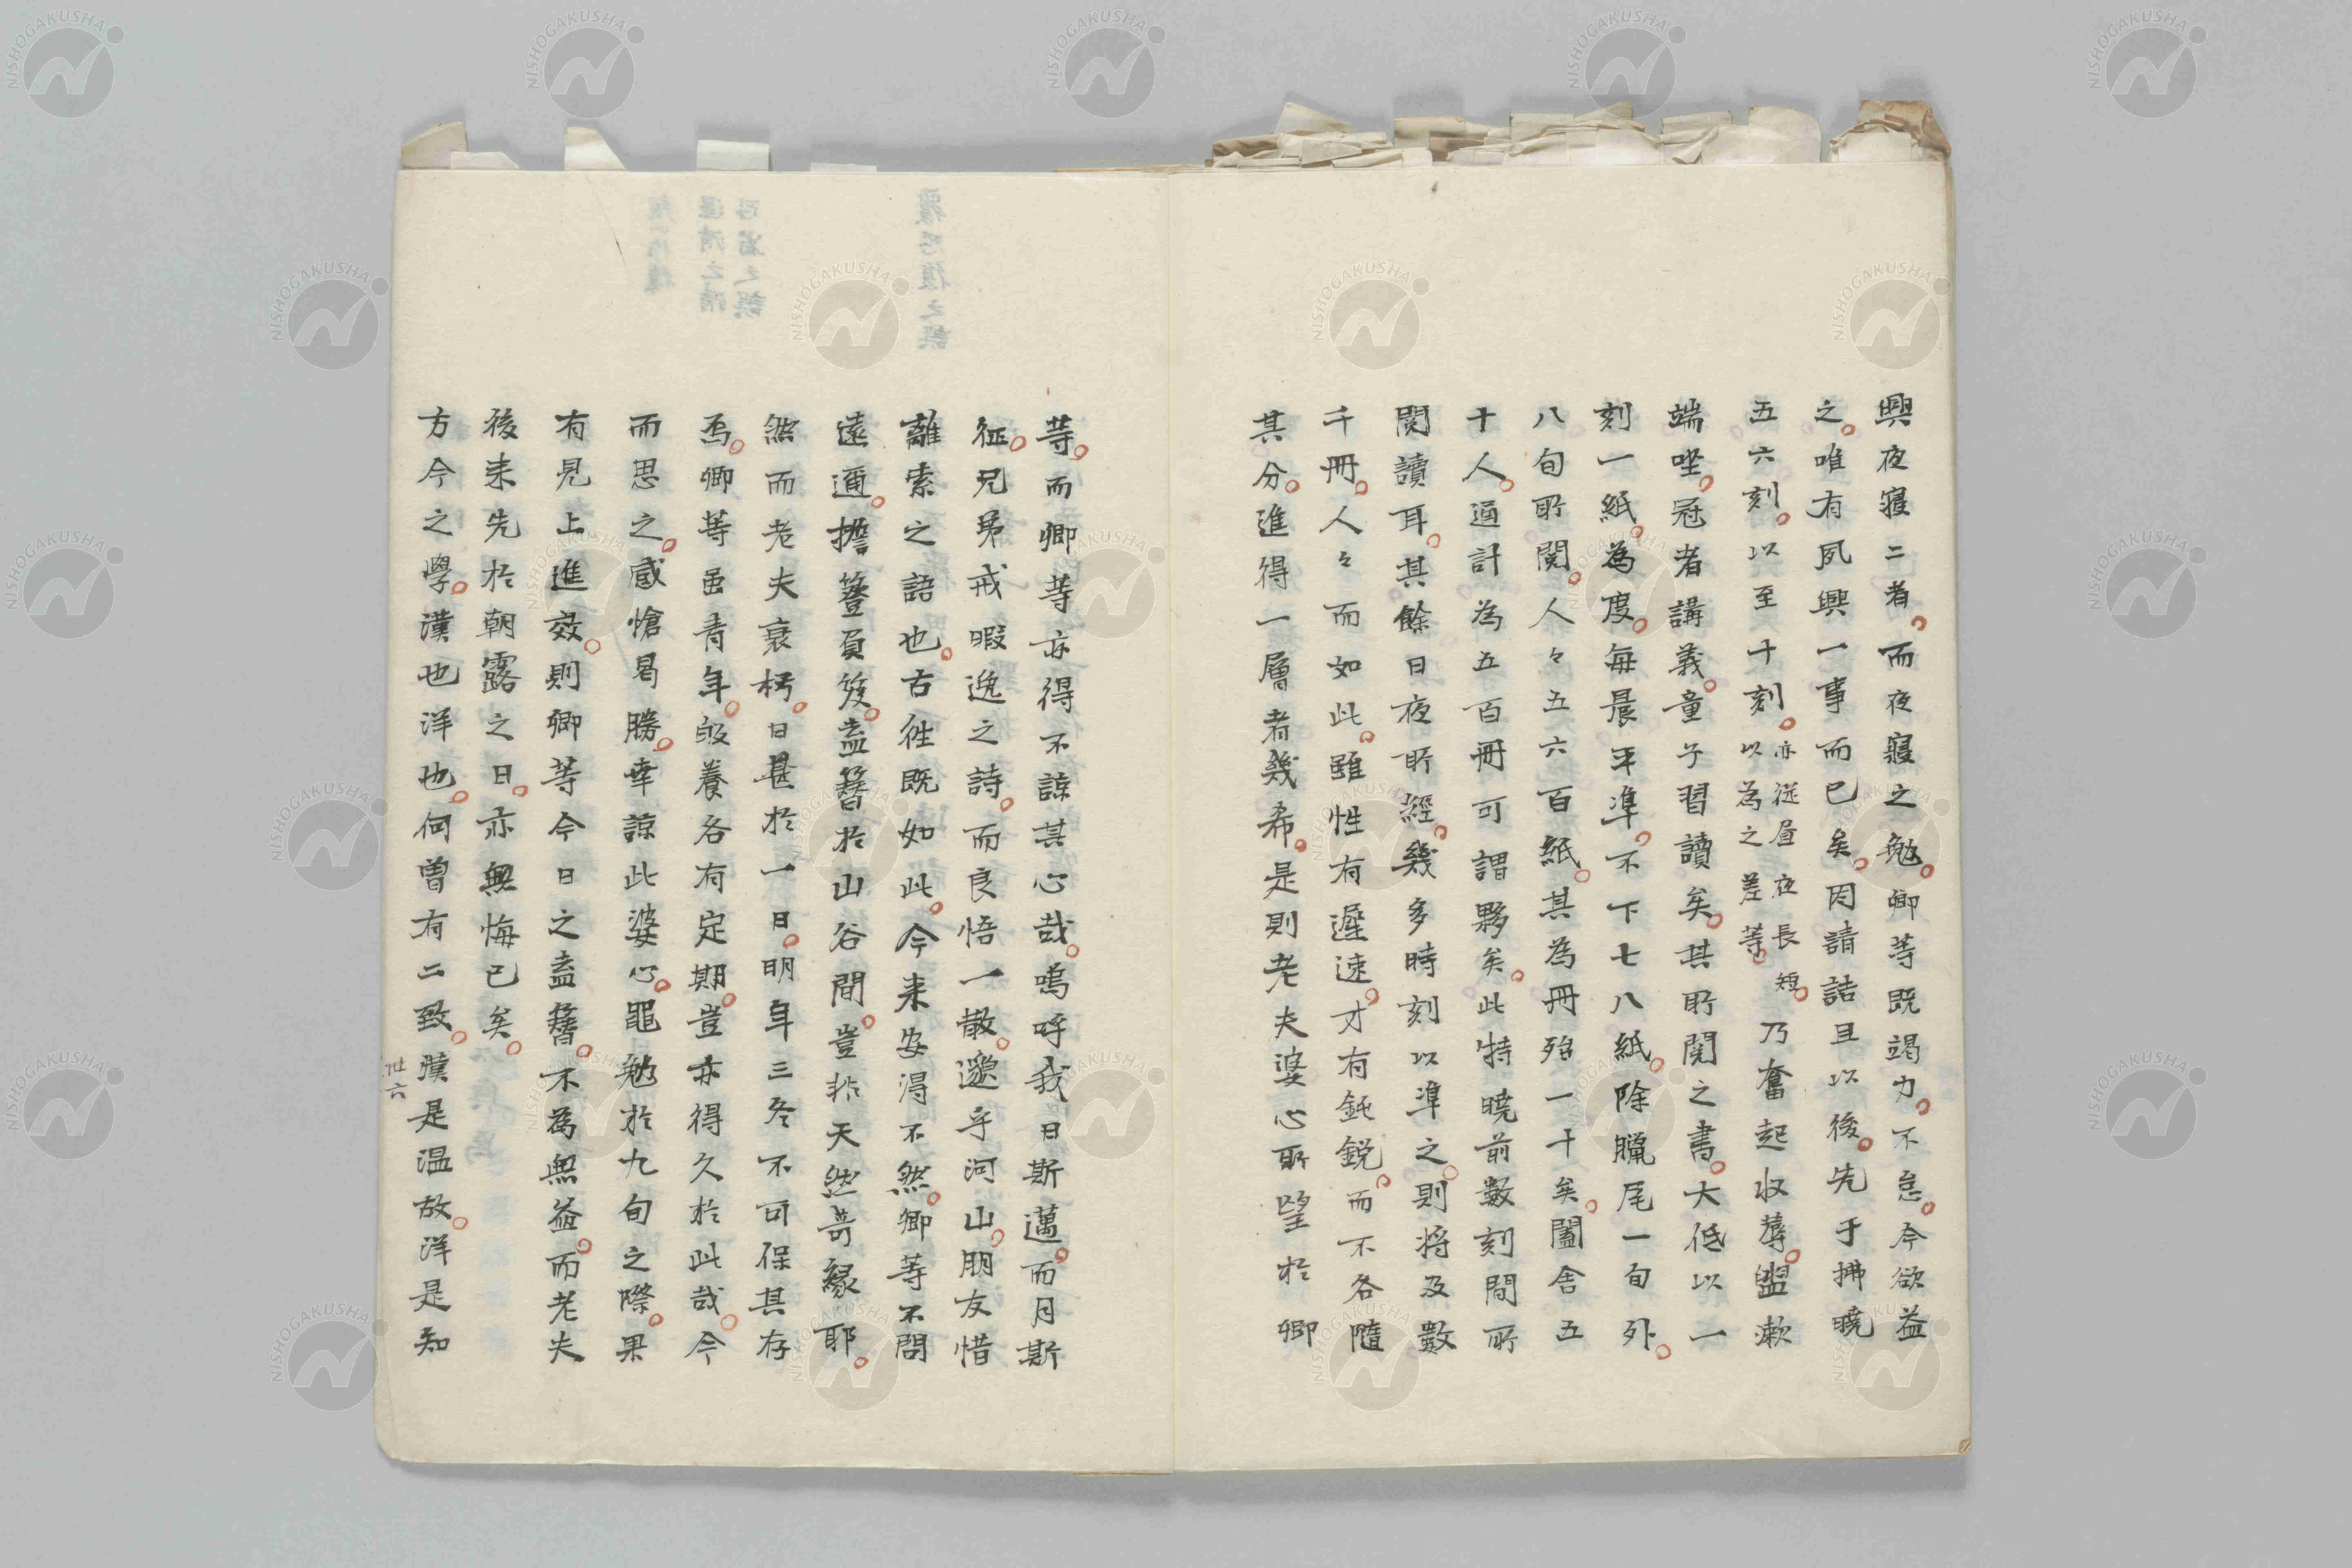 興夜寝二者。而夜寝之勉。卿等既竭力。不怠。今欲益
之。唯有夙興一事而已矣。因請詰旦以後。先于拂曉
五六刻。以至十刻。亦従昼夜長短。以為之差等。乃奮起收蓐。盥漱
端坐。冠者講義。童子習讀矣。其所閲之書。大低以一
刻一紙。為度。每晨平準。不下七八紙。除臘尾一旬外。
八旬所閲。人々五六百紙。其為冊殆一十矣。闔舎五
十人。通計為五百冊可謂夥矣。此特曉前數刻間所
閲讀耳。其餘日夜所經。幾多時刻以準之。則将及數
千冊。人々而如此。雖性有遲速。才有鈍鋭。而不各隨
其分。進得一層者幾希。是則老夫婆心所望於卿
等。而卿等亦得不諒其心哉。嗚呼我日斯邁。而月斯
征。兄弟戒暇逸之詩。而良悟一散。邈乎河山。朋友惜
離索之語也。古往既如此。今来安得不然。卿等不問
遠邇。擔簦負笈。盍簪於山谷間。豈非天然苛縁耶。
然而老夫衰朽。日甚於一日。明年三冬不可保其存
焉。卿等虽青年。段養各有定期。豈亦得久於此哉。今
而思之。感愴曷勝。幸諒此婆心。黽勉於九旬之際。果
有見上進效。則卿等今日之盍簪。不為無益。而老夫
後来先於朝露之日。亦無悔已矣。
方今之學。漢也洋也。何曽有二致。漢是温故。洋是知
卅六
NISHOGAKUSHA